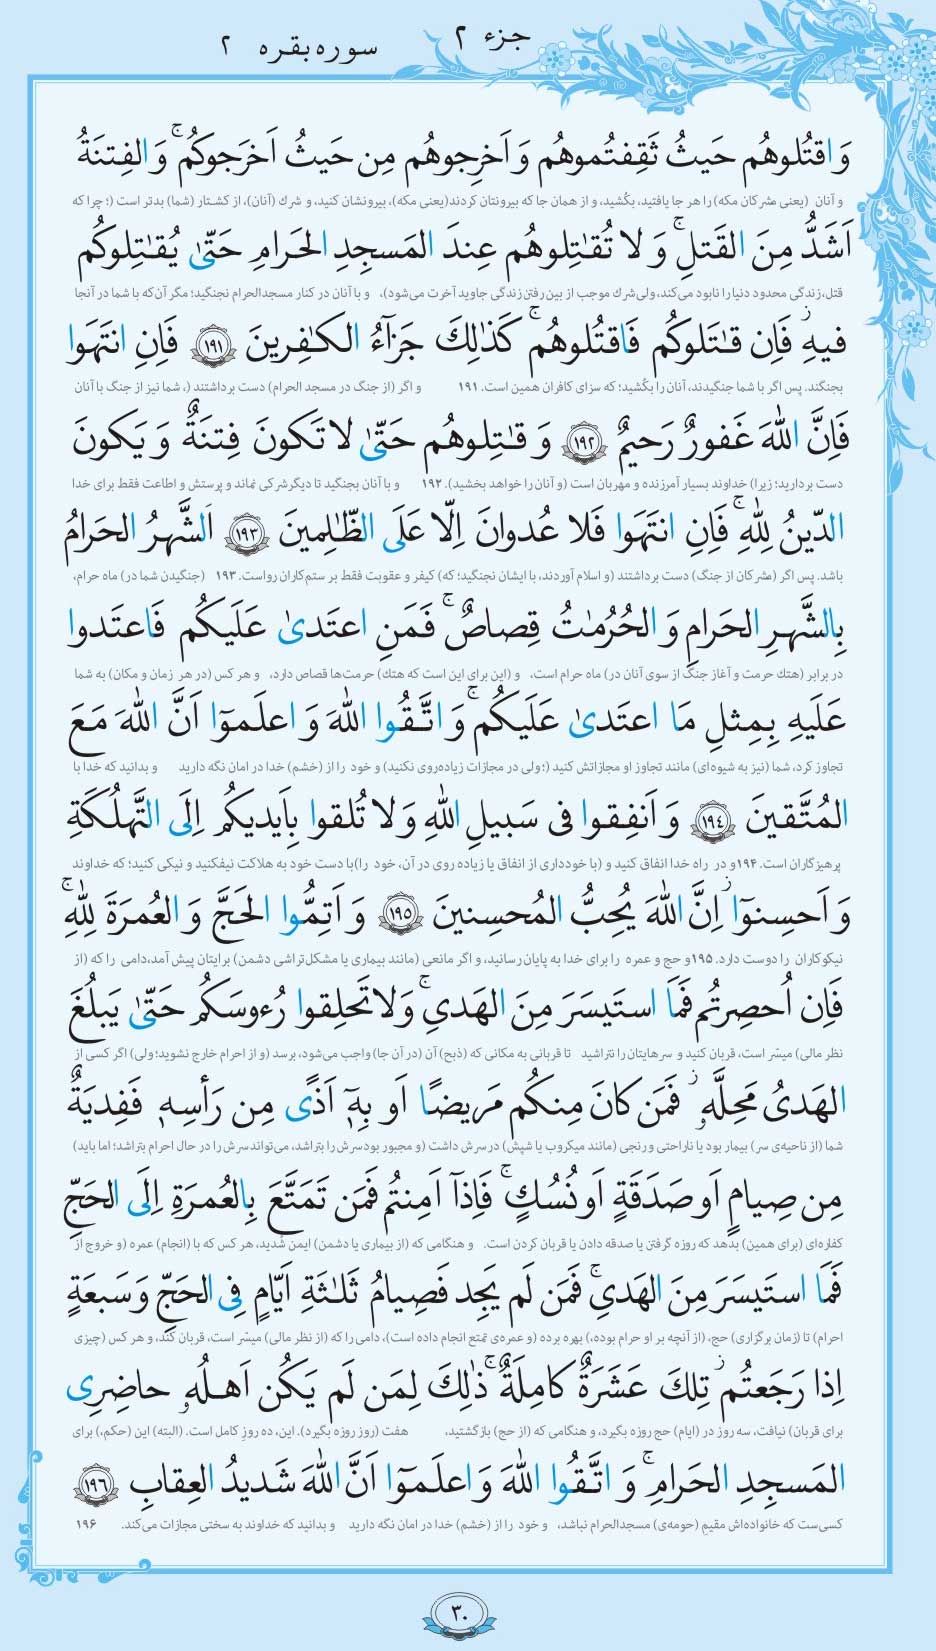 جزء ۲
سوره بقره ۲
وَ اقتُلوهُم حَيثُ ثَقِفتُموهُم وَ اَخرِجوهُم مِن حَيثُ اَخرَجوكُم ۚ وَ الفِتنَةُ
و آنان (یعنی مشرکان مکه) را هر جا یافتید، بکُشید، و از همان جا که بیرونتان کردند (یعنی مکه)، بیرونشان کنید، و شرك (آنان)، از کشتار (شما) بدتر است (؛ چرا که
اَشَدُّ مِنَ القَتلِ ۚ وَ لا تُقـٰتِلوهُم عِندَ المَسجِدِ الحَرامِ حَتّىٰ يُقـٰتِلوكُم
قتل، زندگی محدود دنیا را نابود می‌کند، ولی شرك موجب از بین رفتن زندگی جاوید آخرت می‌شود)، و با آنان در کنار مسجدالحرام نجنگید؛ مگر آن‌که با شما در آنجا
فيهِ ۖ فَاِن قـٰتَلوكُم فَاقتُلوهُم ۗ كَذٰلِكَ جَزآءُ الكـٰفِرينَ ﴿١٩١﴾ فَاِنِ انتَهَوا
بجنگند. پس اگر با شما جنگیدند، آنان را بکُشید؛ که سزای کافران همین است. ۱۹۱ و اگر (از جنگ در مسجد الحرام) دست برداشتند (، شما نیز از جنگ با آنان
فَاِنَّ اللّٰهَ غَفورٌ رَحيمٌ ﴿١٩٢﴾ وَ قـٰتِلوهُم حَتّىٰ لا تَكونَ فِتنَةٌ وَ يَكونَ
دست بردارید؛ زیرا) خداوند بسیار آمرزنده و مهربان است (و آنان را خواهد بخشید). ۱۹۲ و با آنان بجنگید تا دیگر شرکی نماند و پرستش و اطاعت فقط برای خدا
الدّينُ لِلّٰهِ ۚ فَاِنِ انتَهَوا فَلا عُدوانَ اِلّا عَلَى الظّـٰلِمينَ ﴿١٩٣﴾ اَلشَّهرُ الحَرامُ
باشد. پس اگر (مشرکان از جنگ) دست برداشتند (و اسلام آوردند، با ایشان نجنگید؛ که) کیفر و عقوبت فقط بر ستم‌کاران رواست. ۱۹۳ (جنگیدن شما در) ماه حرام،
بِالشَّهرِ الحَرامِ وَ الحُرُمـٰتُ قِصاصٌ ۚ فَمَنِ اعتَدىٰ عَلَيكُم فَاعتَدوا
در برابر (هتك حرمت و آغاز جنگ از سوی آنان در) ماه حرام است، و (این برای این است که هتك) حرمت‌ها قصاص دارد، و هر کس (در هر زمان و مکان) به شما
عَلَيهِ بِمِثلِ مَا اعتَدىٰ عَلَيكُم ۚ وَ اتَّقُوا اللّٰهَ وَ اعلَموٓا اَنَّ اللّٰهَ مَعَ
تجاوز کرد، شما (نیز به شیوه‌ای) مانند تجاوز او مجازاتش کنید (؛ ولی در مجازات زیاده‌روی نکنید) و خود را از (خشم) خدا در امان نگه دارید و بدانید که خدا با
المُتَّقينَ ﴿١٩٤﴾ وَ اَنفِقوا فى سَبيلِ اللّٰهِ وَ لا تُلقوا بِاَيديكُم اِلَى التَّهلُكَةِ
پرهیزگاران است. ۱۹۴ و در راه خدا انفاق کنید و (با خودداری از انفاق یا زیاده روی در آن، خود را) با دست خود به هلاکت نیفکنید و نیکی کنید؛ که خداوند
وَ اَحسِنوٓا ۛ اِنَّ اللّٰهَ يُحِبُّ المُحسِنينَ ﴿١٩٥﴾ وَ اَتِمُّوا الحَجَّ وَ العُمرَةَ لِلّٰهِ ۚ
نیکوکاران را دوست دارد. ۱۹۵ و حج و عمره را برای خدا به پایان رسانید، و اگر مانعی (مانند بیماری یا مشکل‌تراشی دشمن) برایتان پیش آمد، دامی را که (از
فَاِن اُحصِرتُم فَمَا استَيسَرَ مِنَ الهَدىِ ۚ وَ لا تَحلِقوا رُءوسَكُم حَتّىٰ يَبلُغَ
نظر مالی) میسّر است، قربان کنید و سرهایتان را نتراشید تا قربانی به مکانی که (ذبح) آن (در آن جا) واجب می‌شود، برسد (و از احرام خارج نشوید؛ ولی) اگر کسی از
الهَدىُ مَحِلَّهٗ ۚ فَمَن كانَ مِنكُم مَريضًا اَو بِهٖٓ اَذًى مِن رَأسِهٖ فَفِديَةٌ
شما (از ناحیه‌ی سر) بیمار بود یا ناراحتی و رنجی (مانند میکروب یا شپش) در سرش داشت (و مجبور بود سرش را بتراشد، می‌تواند سرش را در حال احرام بتراشد؛ اما باید)
مِن صِيامٍ اَو صَدَقَةٍ اَو نُسُكٍ ۚ فَاِذآ اَمِنتُم فَمَن تَمَتَّعَ بِالعُمرَةِ اِلَى الحَجِّ
کفاره‌ای (برای همین) بدهد که روزه گرفتن یا صدقه دادن یا قربان کردن است. و هنگامی که (از بیماری یا دشمن) ایمن شدید، هر کس که با (انجام) عمره (و خروج از
فَمَا استَيسَرَ مِنَ الهَدىِ ۚ فَمَن لَم يَجِد فَصِيامُ ثَلـٰثَةِ اَيّامٍ فِى الحَجِّ وَ سَبعَةٍ
احرام) تا (زمان برگزاری) حج، (از آنچه بر او حرام بوده،) بهره برده (و عمره‌ی تمتع انجام داده است)، دامی را که (از نظر مالی) میسّر است، قربان کند، و هر کس (چیزی
اِذا رَجَعتُم ۗ تِلكَ عَشَرَةٌ كامِلَةٌ ۚ ذٰلِكَ لِمَن لَم يَكُن اَهلُهٗ حاضِرِى
برای قربان) نیافت، سه روز در (ایام) حج روزه بگیرد، و هنگامی که (از حج) بازگشتید، هفت (روز روزه بگیرد). این، ده روزِ کامل است. (البته) این (حکم،) برای
المَسجِدِ الحَرامِ ۚ وَ اتَّقُوا اللّٰهَ وَ اعلَموٓا اَنَّ اللّٰهَ شَديدُ العِقابِ ﴿١٩٦﴾
کسی‌ست که خانواده‌اش مقیمِ (حومه‌ی) مسجدالحرام نباشد، و خود را از (خشم) خدا در امان نگه دارید و بدانید که خداوند به سختی مجازات می‌کند. ۱۹۶
۳۰